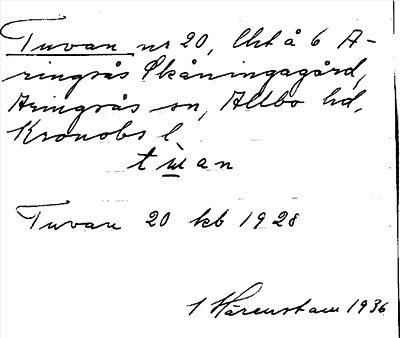 Tuvan nr 20, lht å 6 A-
ringsås Skåningagård,
Aringsås sn, Allbo hd,
Kronobs l.
tu̲an
Tuvan 20 kb 1928
1 Härenstam 1936